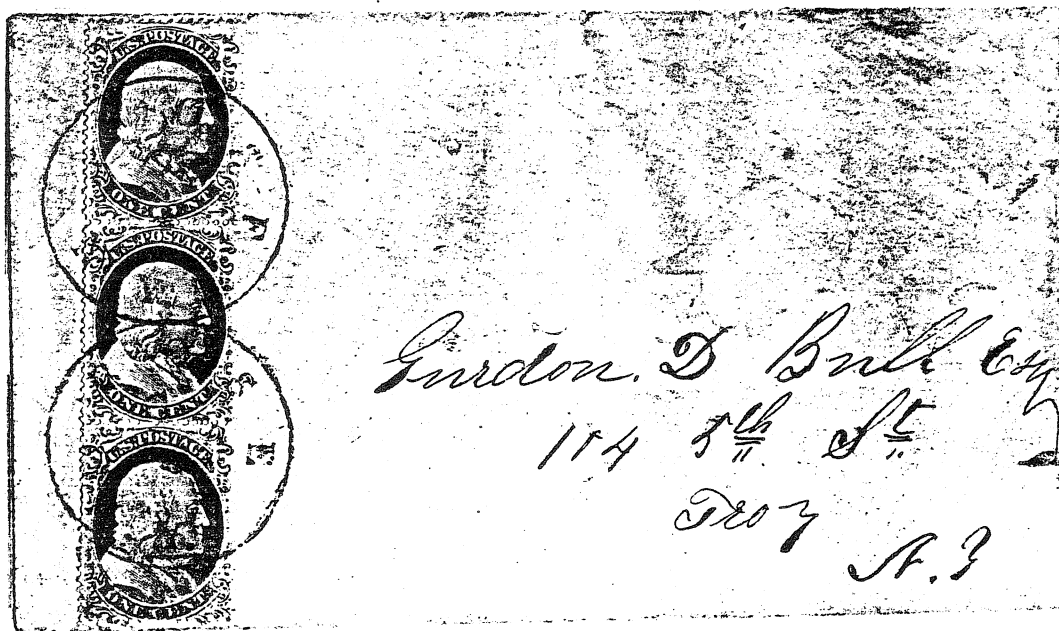 U.S. POSTAGE
ONE CENT
U.S. POSTAGE
ONE CENT
U.S. POSTAGE
ONE CENT
Gurdon. D Bull Esq
114 5th St
Troy
N.Y